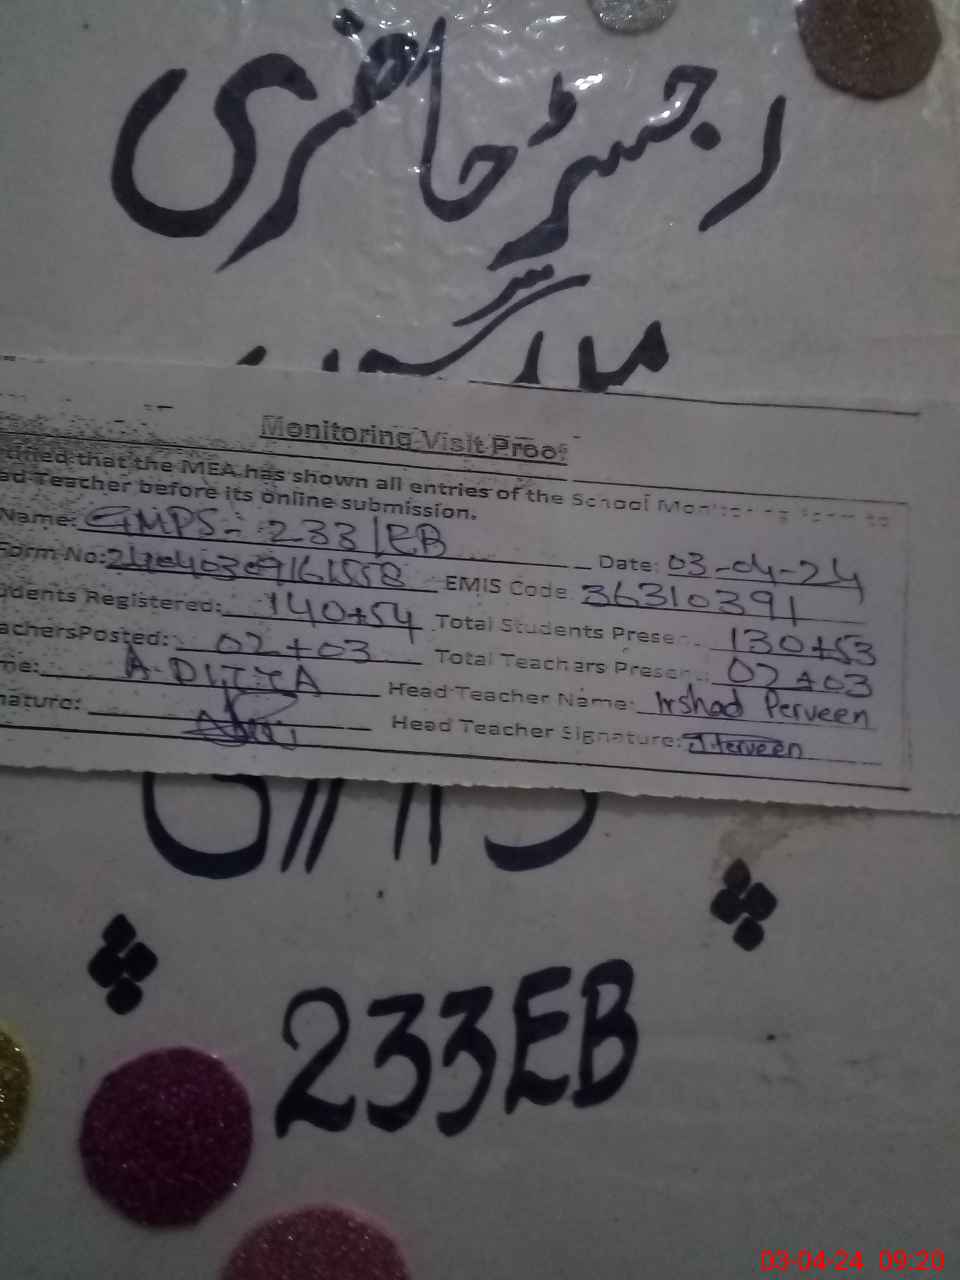 رجسٹر حاضری
Monitoring Visit Proof
tified that the MEA has shown all entries of the School Monitoring form to
ad Teacher before its online submission.
Name: GMPS-233/EB Date: 03-04-24
Form No: EMIS Code 36310391
udents Registered: 140+54 Total Students Presen 130+53
achersPosted: 02+03 Total Teachers Presen 02+03
me: A-DITTA Head Teacher Name: Irshad Perveen
nature: Head Teacher Signature: I.Perveen
233EB
03-04-24 09:20